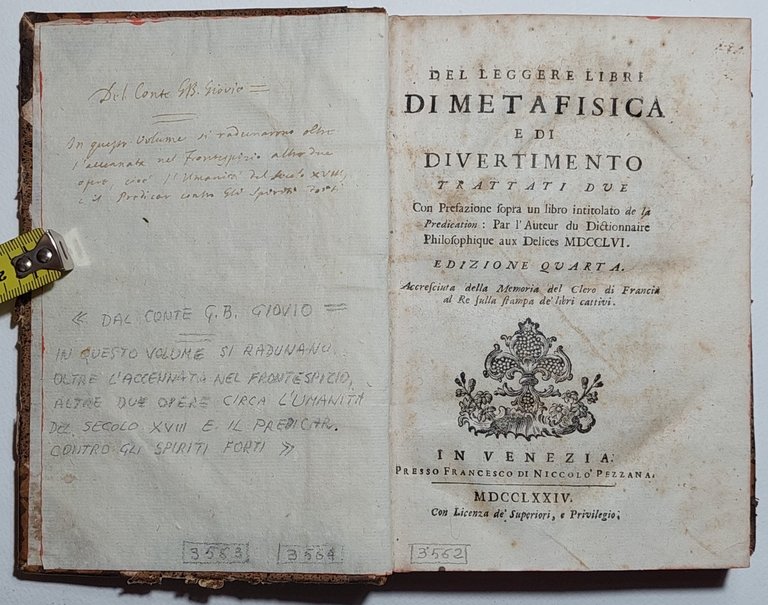 Del Conte GB. Giovio =
In questo Volume si radunarono oltre
l'accennata nel Frontespizio altre due
opere cioè l'Umanità del secolo XVIII,
e il Predicar contro Gli Spiriti forti
« DAL CONTE G.B. GIOVIO =
IN QUESTO VOLUME SI RADUNANO
OLTRE L'ACCENNATA NEL FRONTESPICIO,
ALTRE DUE OPERE CIRCA L'UMANITÀ
DEL SECOLO XVIII E IL PREDICAR.
CONTRO GLI SPIRITI FORTI »
3563 3564
DEL LEGGERE LIBRI
DI METAFISICA
E DI
DIVERTIMENTO
TRATTATI DVE
Con Prefazione sopra un libro intitolato de la
Predication : Par l'Auteur du Dictionnaire
Philosophique aux Delices MDCCLVI.
EDIZIONE QVARTA.
Accresciuta della Memoria del Clero di Francia
al Re sulla stampa de' libri cattivi.
IN VENEZIA.
PRESSO FRANCESCO DI NICCOLO' PEZZANA.
MDCCLXXIV.
Con Licenza de' Superiori, e Privilegio;
3562
2